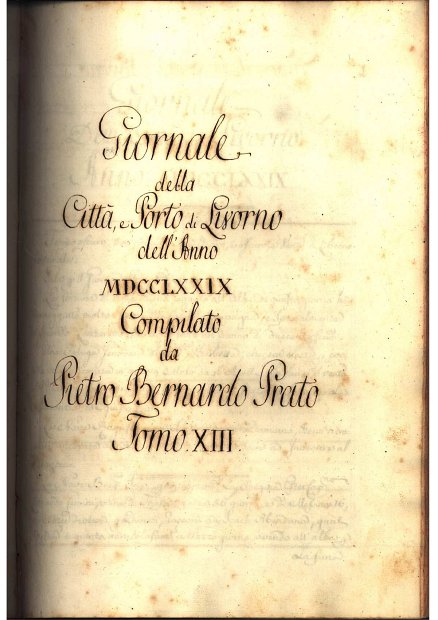 Giornale
della
Città, e Porto di Livorno
dell'Anno
MDCCLXXIX
Compilato
da
Pietro Bernardo Prato
Tomo. XIII.